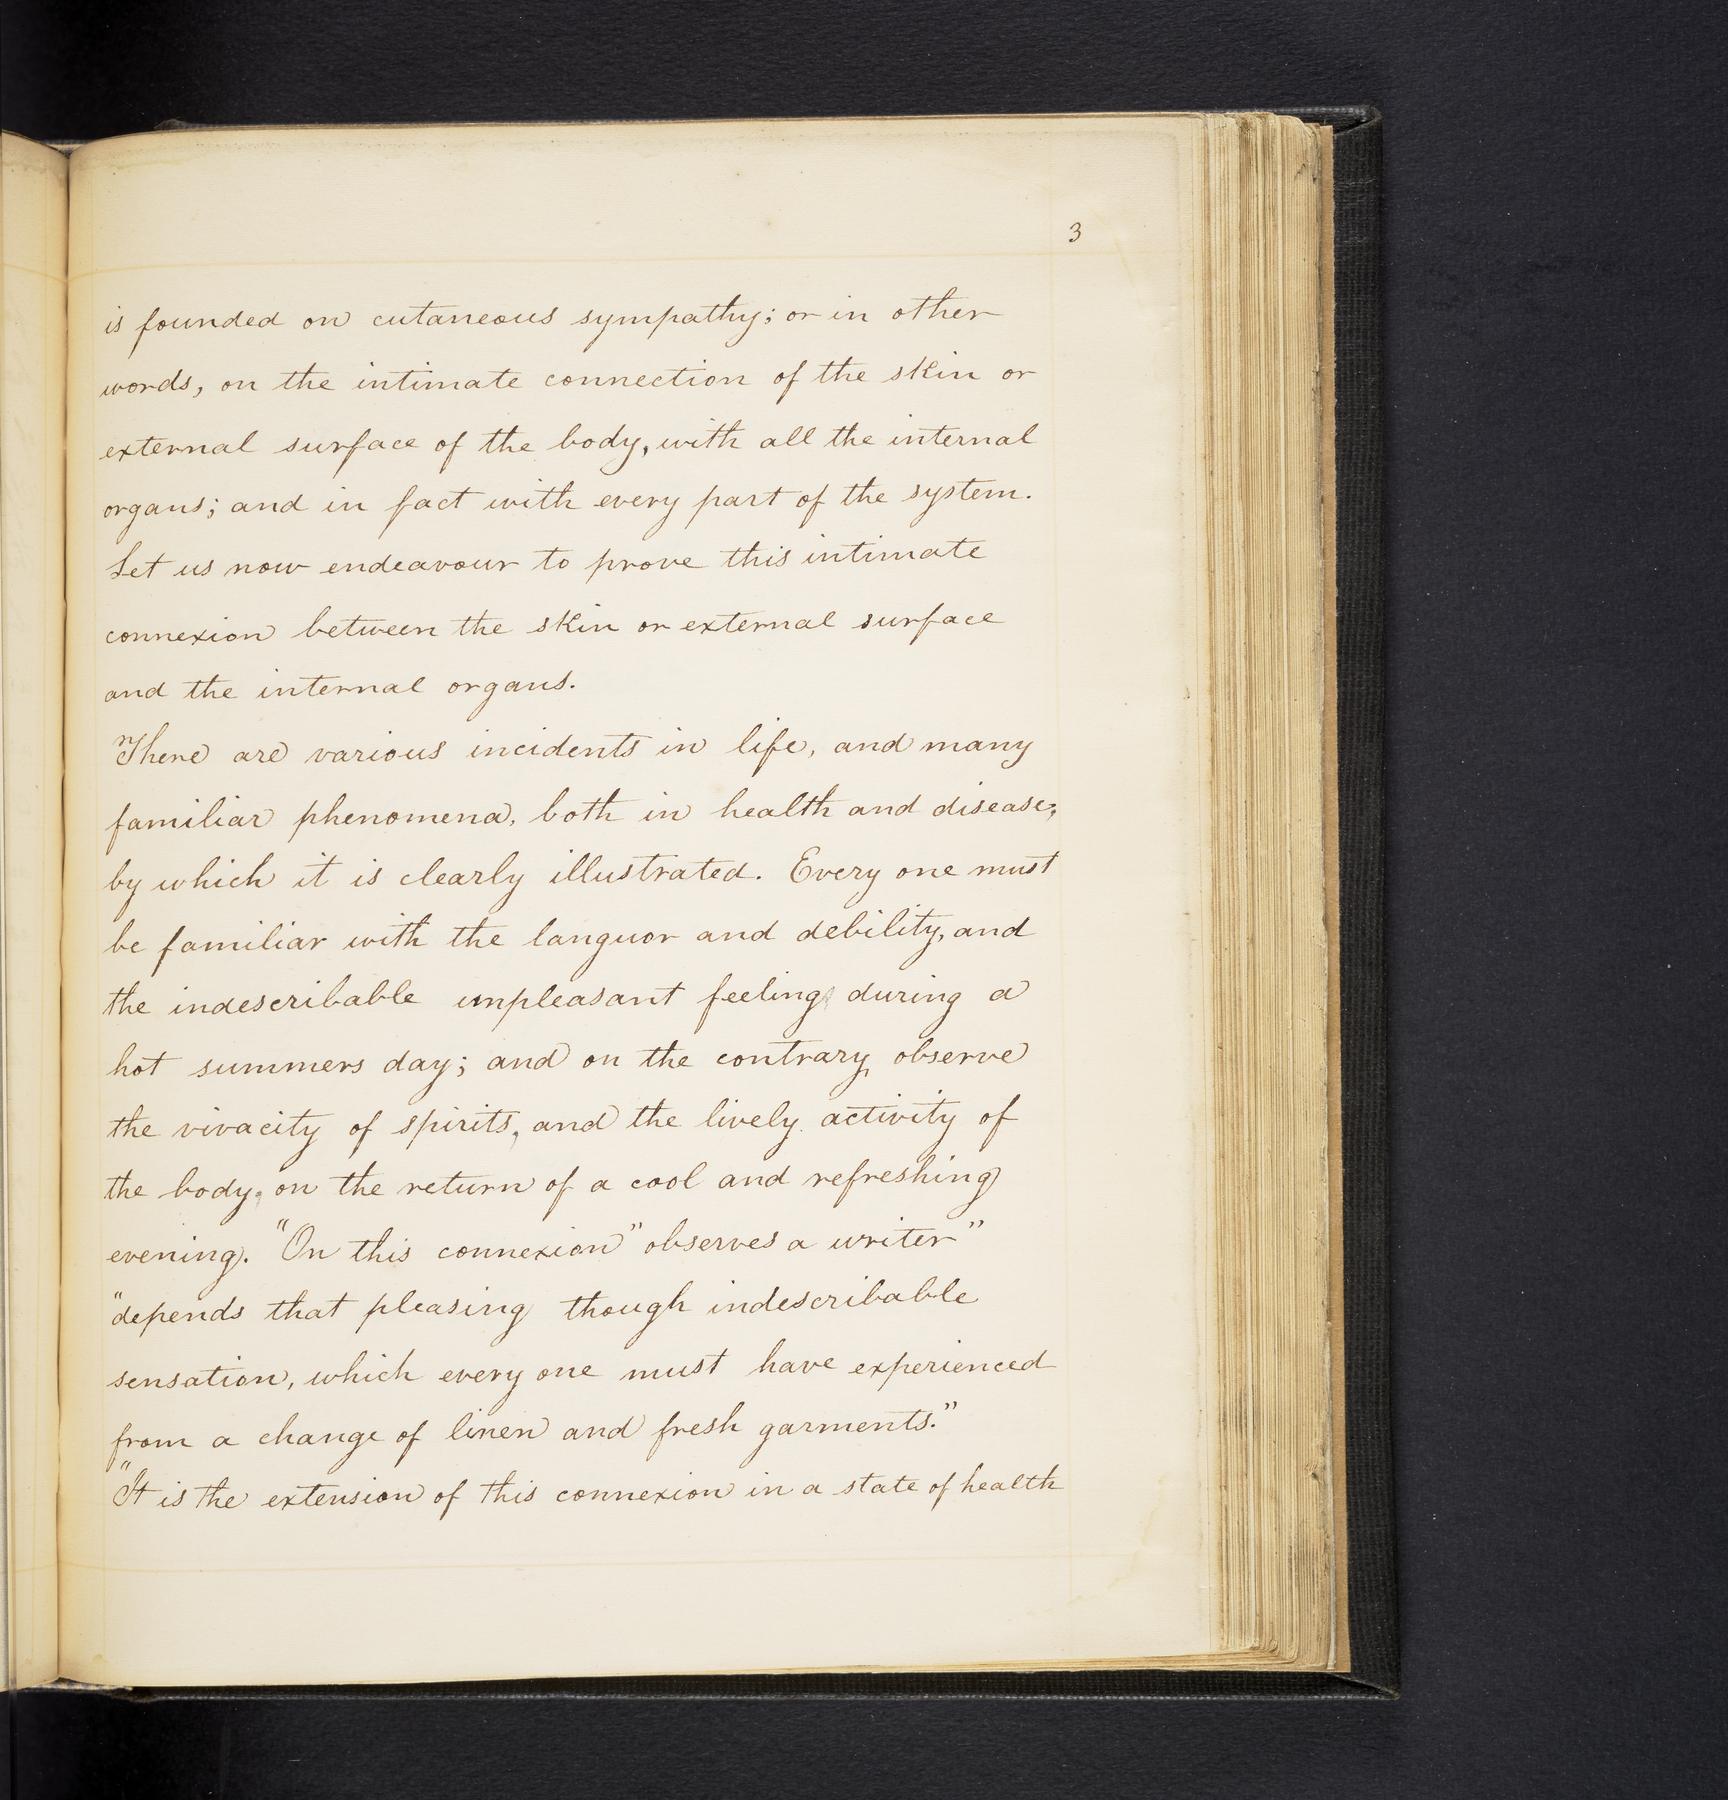 3
is founded on cutaneous sympathy; or in other
words, on the intimate connection of the skin or
external surface of the body, with all the internal
organs; and in fact with every part of the system.
Let us now endeavour to prove this intimate
connexion between the skin or external surface
and the internal organs.
There are various incidents in life, and many
familiar phenomena, both in health and disease,
by which it is clearly illustrated. Every one must
be familiar with the languor and debility, and
the indescribable unpleasant feeling during a
hot summers day; and on the contrary, observe
the vivacity of spirits, and the lively activity of
the body, on the return of a cool and refreshing
evening. "On this connexion" observes a writer"
"depends that pleasing though indescribable
sensation, which every one must have experienced
from a change of linen and fresh garments."
"It is the extension of this connexion in a state of health